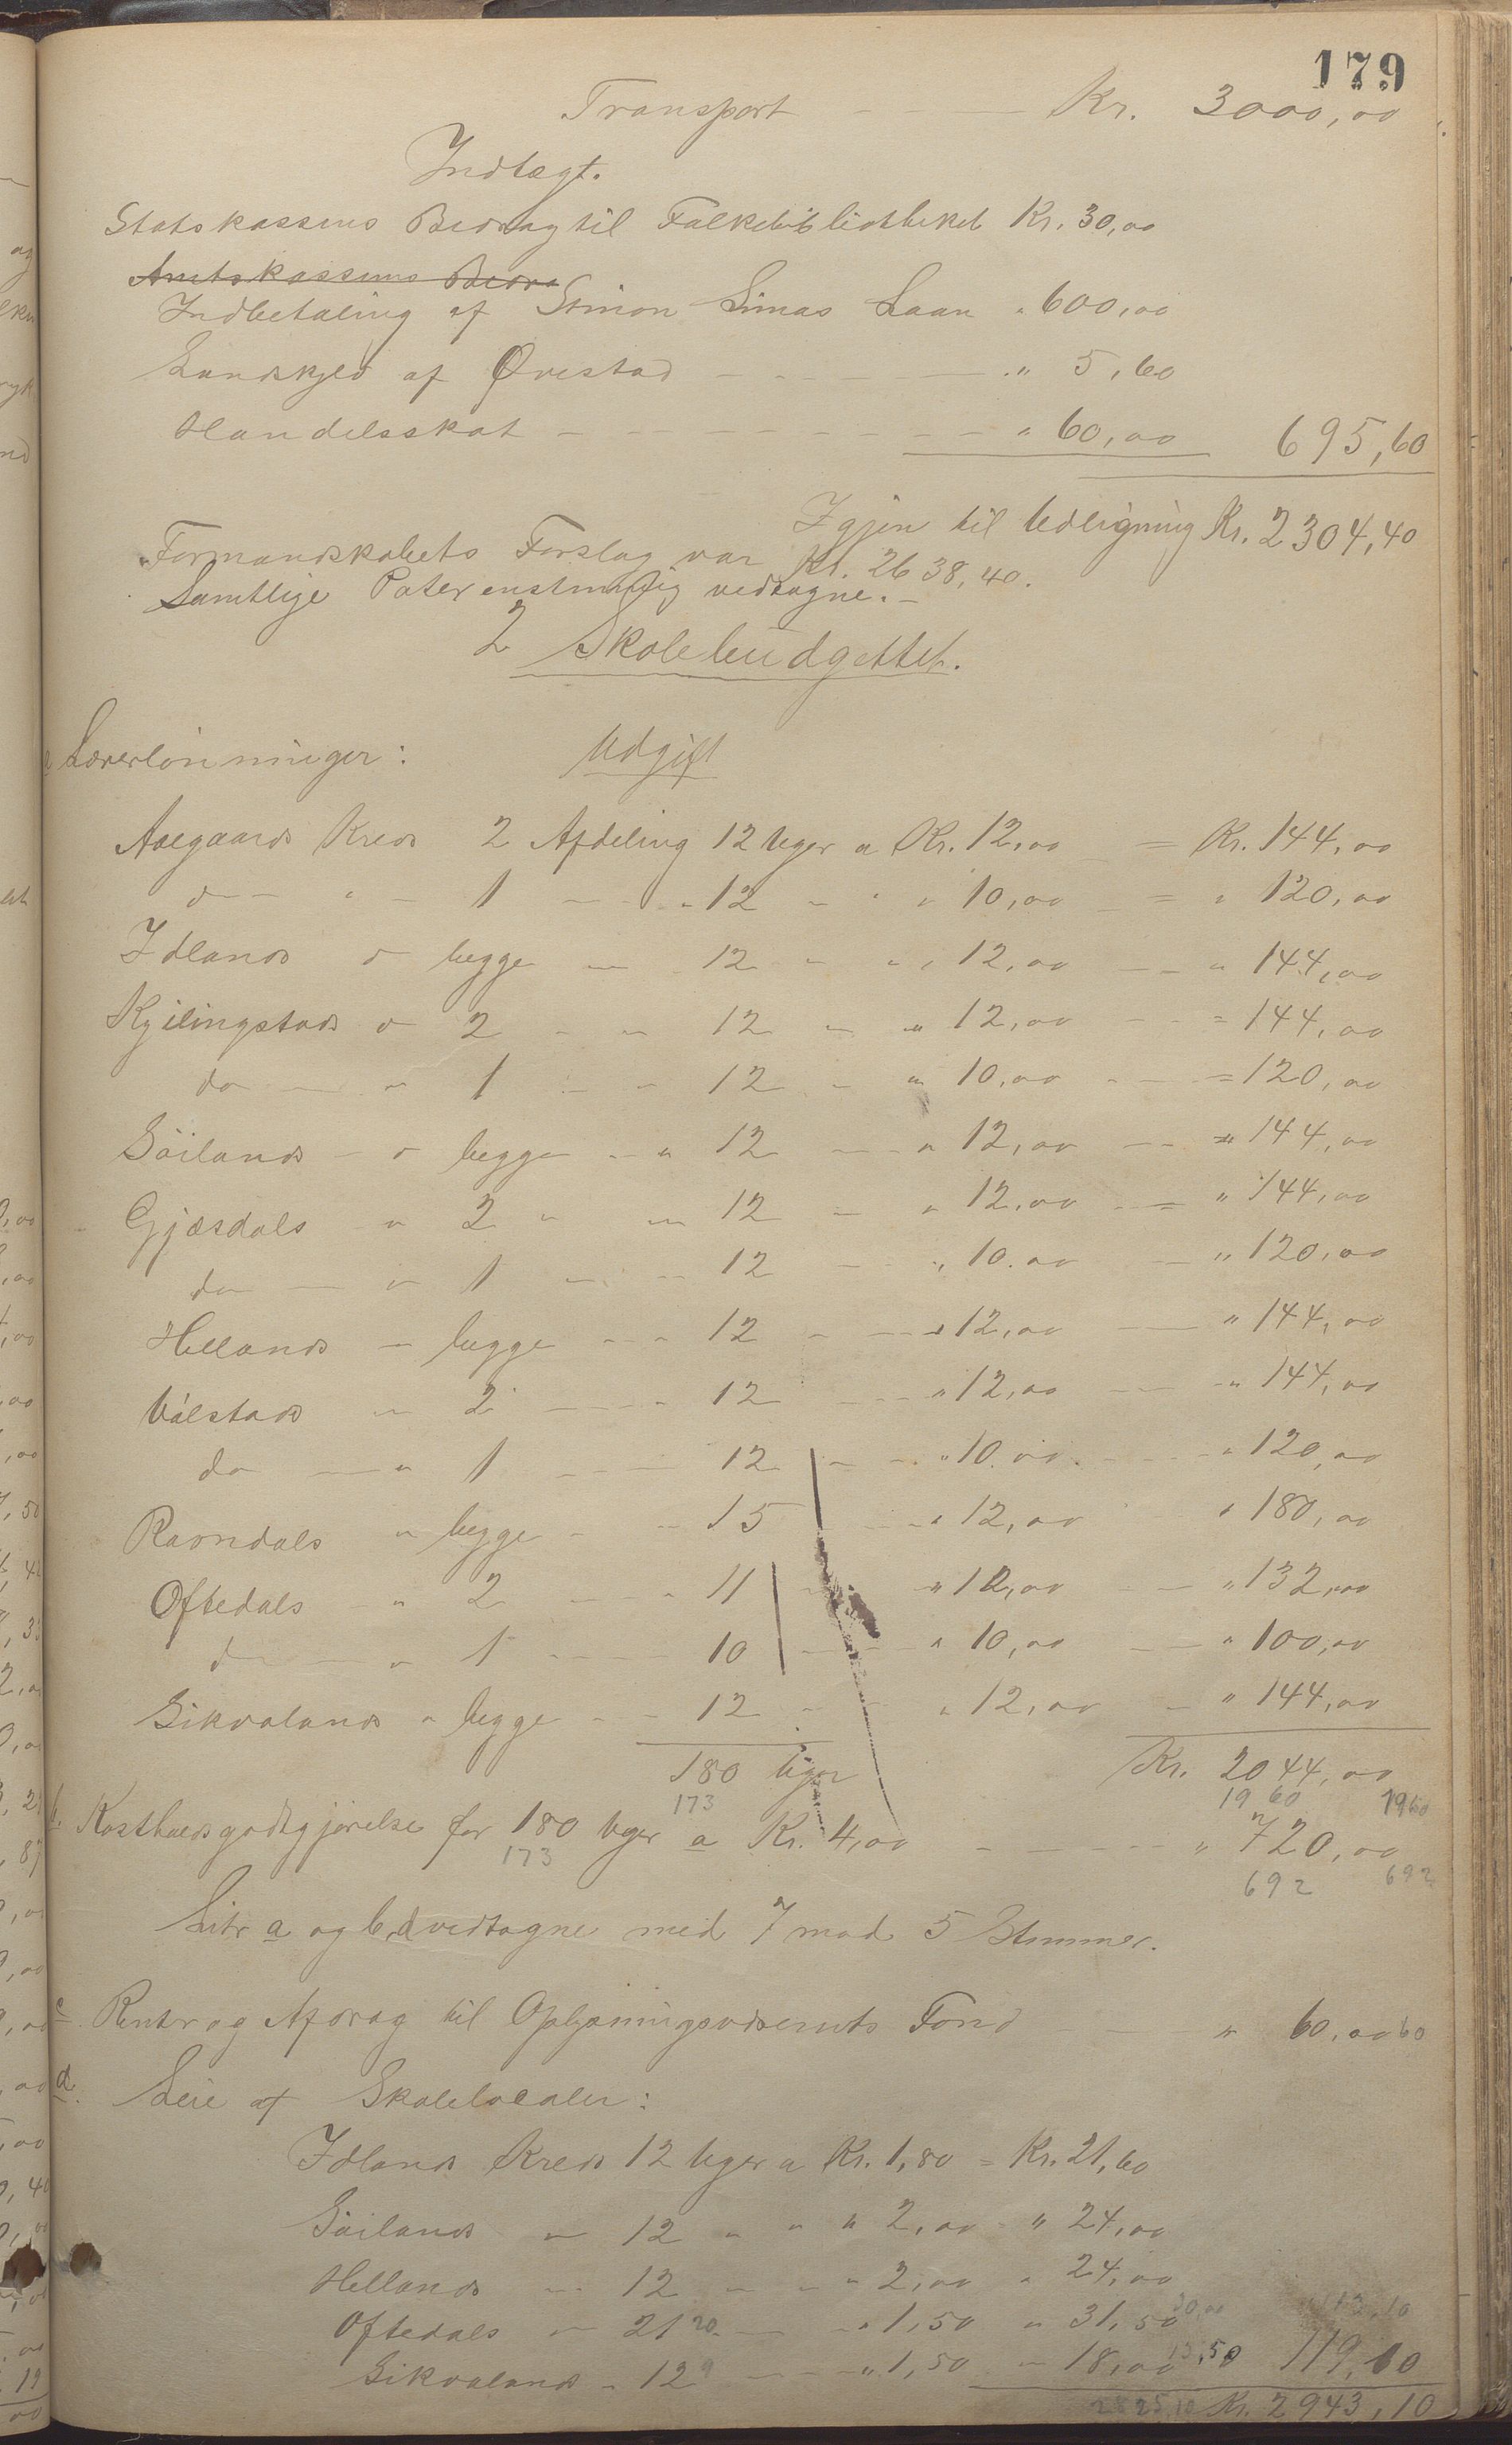 179
Transport — — Kr. 3000,00
Indtægt.
Statskassens Bidrag til Folkebibliotheket Kr. 30,00
Amtskassens Bidra
Indbetaling af Simon Limas Laan " 600,00
Landskyld af Ørestad — — — " 5,60
Handelsskat — — — — — — " 60,00 695,60
Igjen til Udligning Kr. 2304,40
Formandskabets Forslag var Kr. 2638,40.
Samtlige Poster enstemmig vedtagne. —
2 Skolebudgettet.
a Lærerlönninger: Udgift
Aalgaards Kreds 2 Afdeling 12 Uger a Kr. 12,00 = Kr. 144,00
do — " — 1 — — " 12 — " " 10,00 = " 120,00
Idlands do begge — 12 — " " 12,00 — " 144,00
Kyllingstads do 2 — — 12 — " 12,00 — = 144,00
do — " 1 — — 12 — " 10,00 — = 120,00
Söilands — do begge — " 12 — " 12,00 — " 144,00
Gjæsdals — " 2 " — 12 — " 12,00 — = " 144,00
do — " 1 — — 12 — " 10.00 — " 120,00
Hellands — begge — — 12 — — " 12,00 — " 144,00
Ualstads — 2 — — 12 — " 12,00 — " 144,00
do — " 1 — — 12 — — " 10.00 — " 120,00
Ravndals " begge — — 15 — — " 12,00 " 180,00
Oftedals — " 2 — — 11 — " 12,00 — " 132,00
do — " 1 — — 10 — — " 10,00 — " 100,00
Sikvalands " begge — — 12 — " 12,00 — " 144,00
180 Uger Kr. 2044,00
173 1960 1960
b. Kostholdsgodtgjörelse for 180 Uger a Kr. 4,00 — — — " 720,00
173 692 692
Litr a og b, d vedtagne med 7 mod 5 Stemmer.
c. Renter og Afdrag til Oplysningsvæsenets Fond — — " 60,00 60
d. Leie af Skolelocaler:
Idlands Kreds 12 Uger a Kr. 1,80 = Kr. 21,60
Söilands — 12 " " " 2,00 " 24,00
Hellands — 12 — — " 2,00 " 24,00
Oftedals — 21 20 — — " 1,50 " 31,50 30,00 113,10
Sikvalands " 12 9 — — " 1,50 — 18,00 13,50 119,10
2825,10 Kr. 2943,10